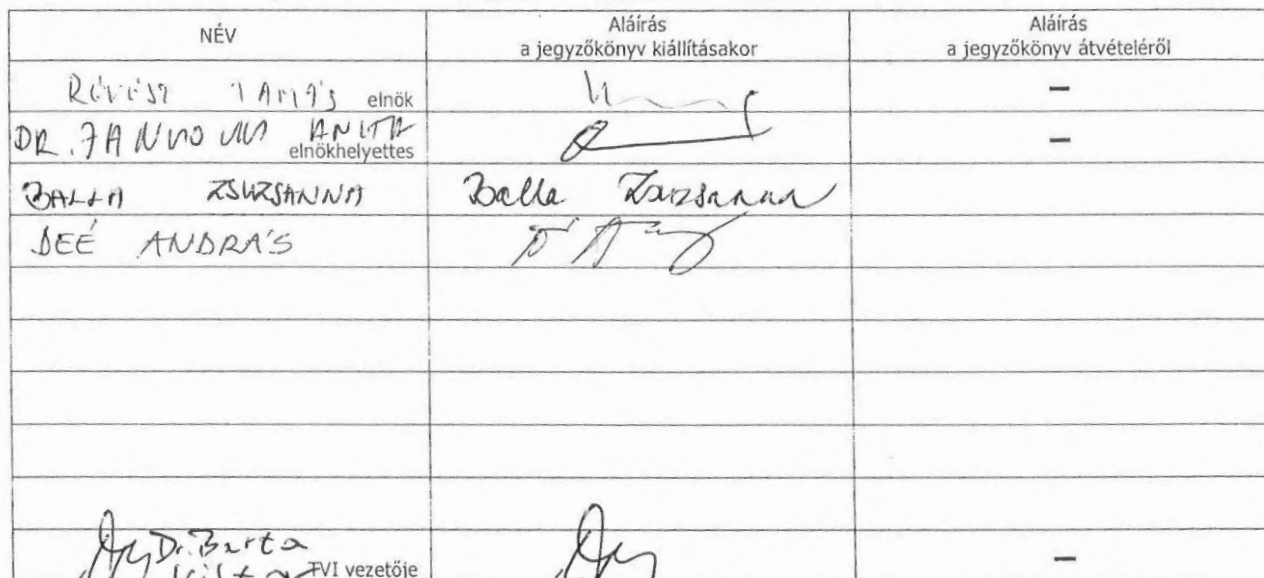 NÉV
Aláírás
a jegyzőkönyv kiállításakor
Aláírás
a jegyzőkönyv átvételéről
RÉVÉSZ TAMÁS elnök
–
DR. ANITA
elnökhelyettes
–
BALLA ZSUZSANNA
Balla Zsuzsanna
DEÉ ANDRÁS
Dr. Barta
TVI vezetője
–